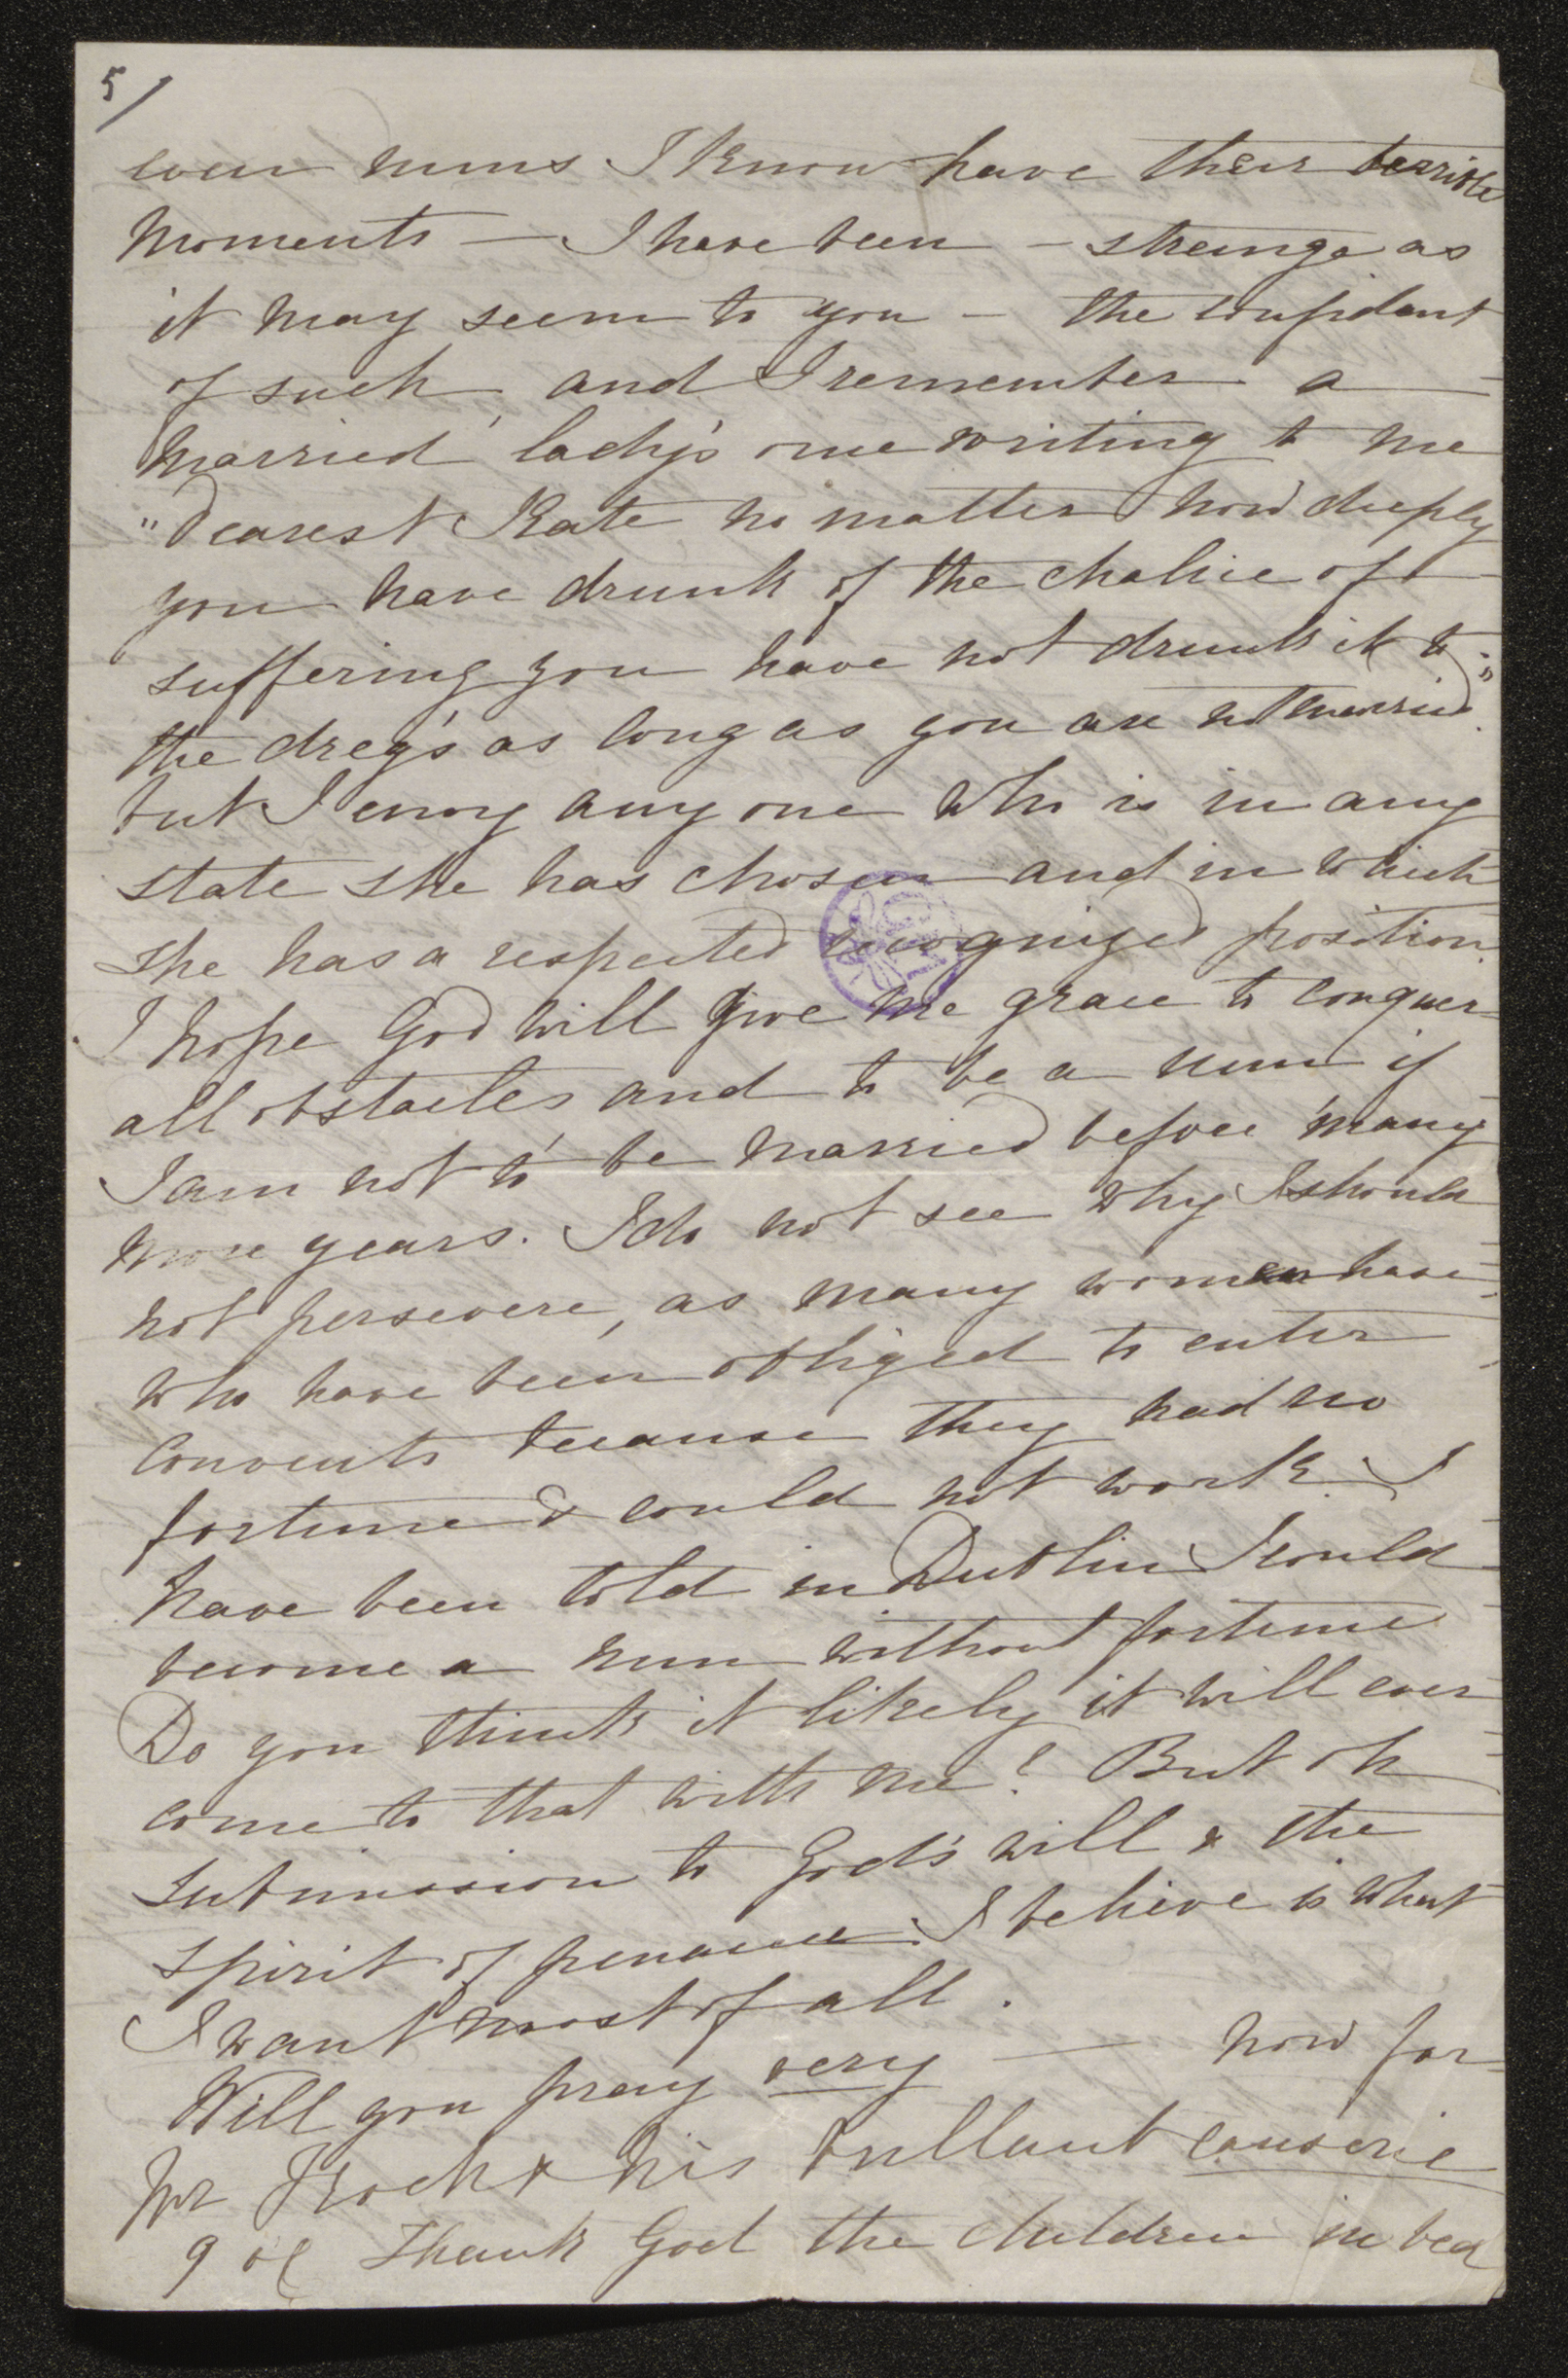 5/
even nuns I know have their terrible
moments — I have been — strange as
it may seem to you — the confidant
of such, and I remember a
married lady's once writing to me
"Dearest Kate no matter how deeply
you have drunk of the chalice of
suffering you have not drunk it to
the dregs as long as you are not married."
but I envy any one who is in any
state she has chosen and in which
she has a respected recognized position.
I hope God will give me grace to conquer
all obstacles, and to be a nun if
I am not to be married before many
more years. I do not see why I should
not persevere, as many women have
who have been obliged to enter
convents because they had no
fortune & could not work. I
have been told in Dublin I could
become a nun without fortune
Do you think it likely it will ever
come to that with me? But oh
submission to God's will & the
spirit of penance I believe is what
I want most of all.
Will you pray very — now for
Mr & his brilliant causerie
9 oc Thank God the children in bed